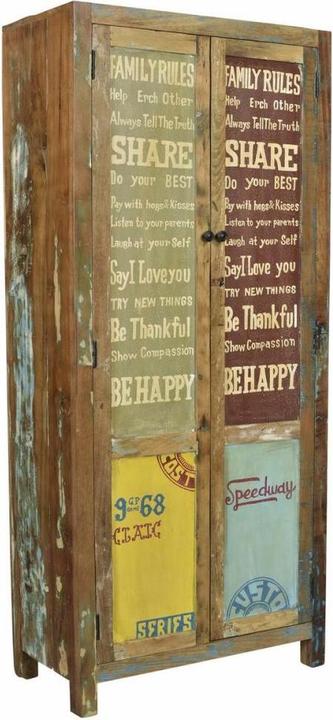 FAMILY RULES
Help Erch Other
Always Tell The Truth
SHARE
Do your BEST
Pay with hogs & Kisses
Listen to your parents
Laugh at your Self
Say I Love you
TRY NEW THINGS
Be Thankful
Show Compassion
BE HAPPY
FAMILY RULES
Help Erch Other
Always Tell The Truth
SHARE
Do your BEST
Pay with hogs & Kisses
Listen to your parents
Laugh at your Self
Say I Love you
TRY NEW THINGS
Be Thankful
Show Compassion
BE HAPPY
CUSTO
9 68
CLAIC
SERIES
Speedway
CUSTO